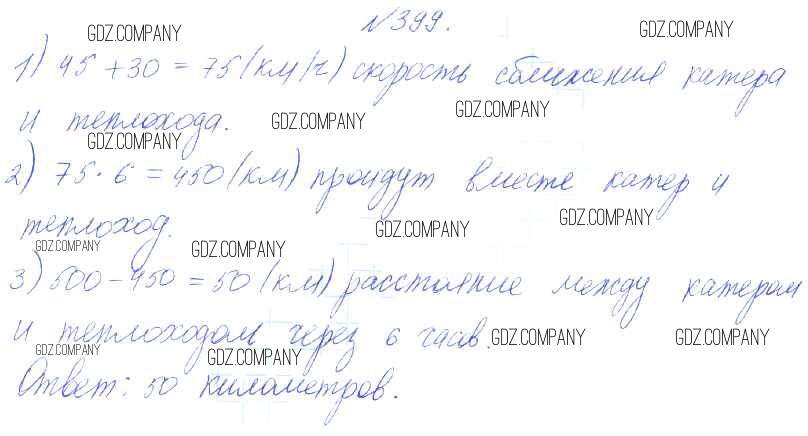 №399.
GDZ.COMPANY GDZ.COMPANY
1) 45 + 30 = 75 (км/ч) скорость сближения катера
и теплохода. GDZ.COMPANY GDZ.COMPANY
GDZ.COMPANY
2) 75 · 6 = 450 (км) пройдут вместе катер и
теплоход. GDZ.COMPANY GDZ.COMPANY
GDZ.COMPANY GDZ.COMPANY
3) 500 - 450 = 50 (км) расстояние между катером
и теплоходом через 6 часов. GDZ.COMPANY GDZ.COMPANY
GDZ.COMPANY GDZ.COMPANY
Ответ: 50 километров.